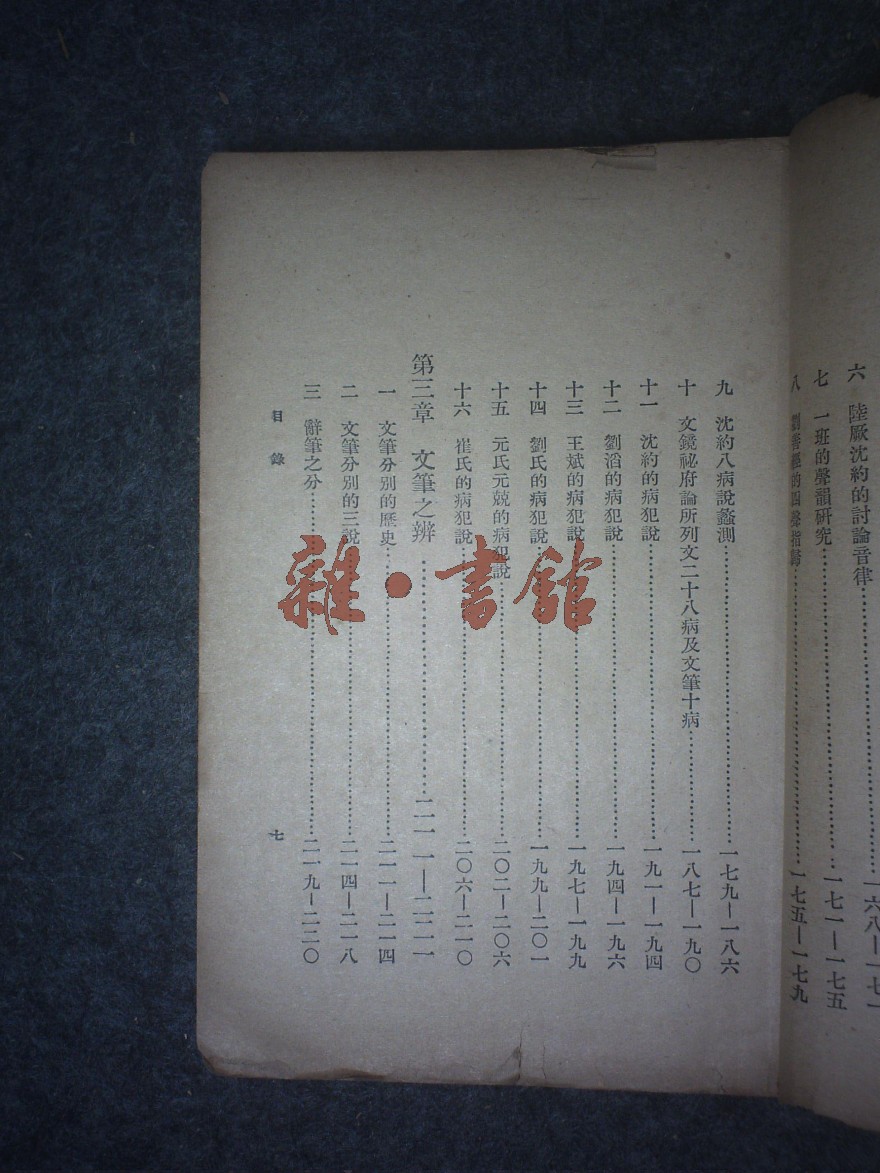 六　陸厥沈約的討論音律……一六八—一七一
七　一班的聲韻研究……一七一—一七五
八　劉善經的四聲指歸……一七五—一七九
九　沈約八病說蠡測……一七九—一八六
十　文鏡祕府論所列文二十八病及文筆十病……一八七—一九〇
十一　沈約的病犯說……一九一—一九四
十二　劉滔的病犯說……一九四—一九六
十三　王斌的病犯說……一九七—一九九
十四　劉氏的病犯說……一九九—二〇一
十五　元氏元兢的病犯說……二〇二—二〇六
十六　崔氏的病犯說……二〇六—二一〇
第三章　文筆之辨……二一一—二二一
一　文筆分別的歷史……二一一—二一四
二　文筆分別的三說……二一四—二一八
三　辭筆之分……二一九—二二〇
目錄　七
雜·書館